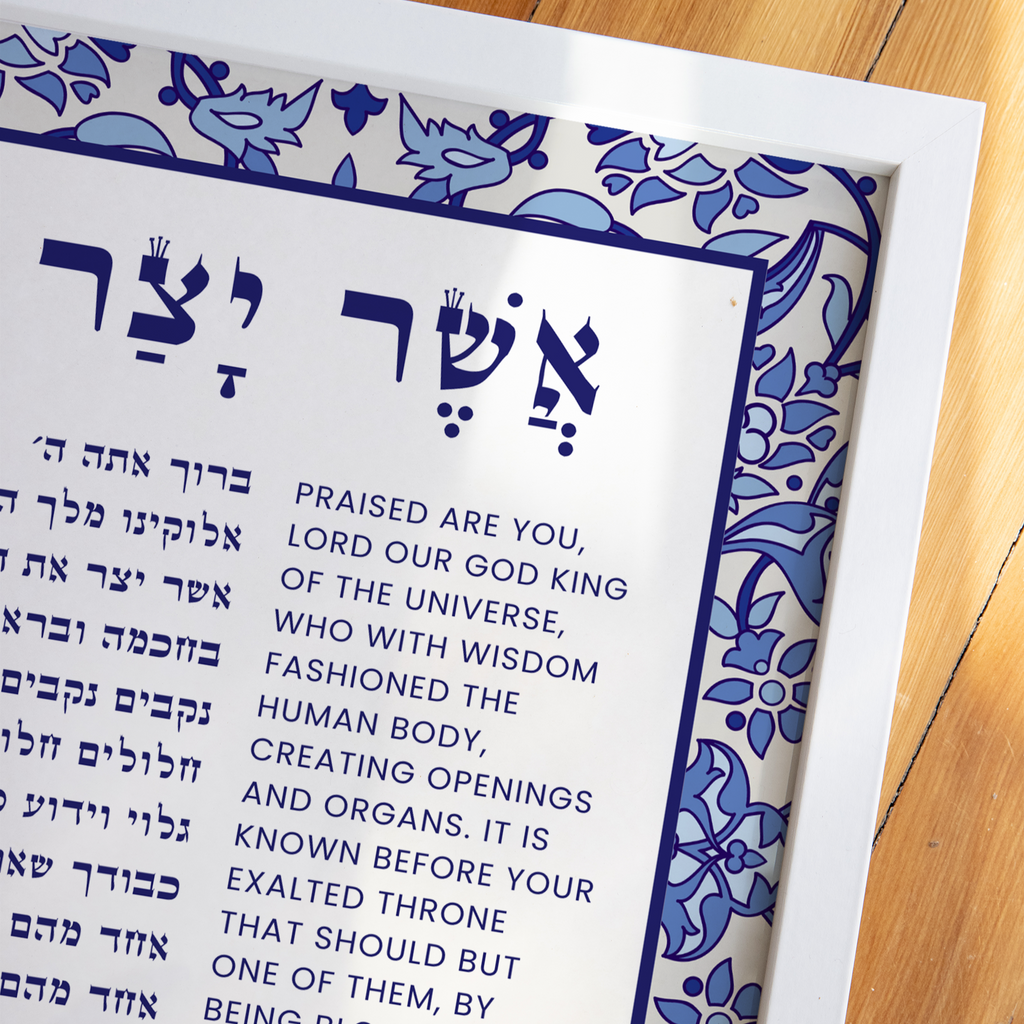 אֲשֶׁר יָצַר
ברוך אתה ה׳
אלוקינו מלך
אשר יצר את
בחכמה וברא
נקבים נקבים
חלולים חלו
גלוי וידוע
כבודך
אחד מהם
אחד מהם
PRAISED ARE YOU,
LORD OUR GOD KING
OF THE UNIVERSE,
WHO WITH WISDOM
FASHIONED THE
HUMAN BODY,
CREATING OPENINGS
AND ORGANS. IT IS
KNOWN BEFORE YOUR
EXALTED THRONE
THAT SHOULD BUT
ONE OF THEM, BY
BEING